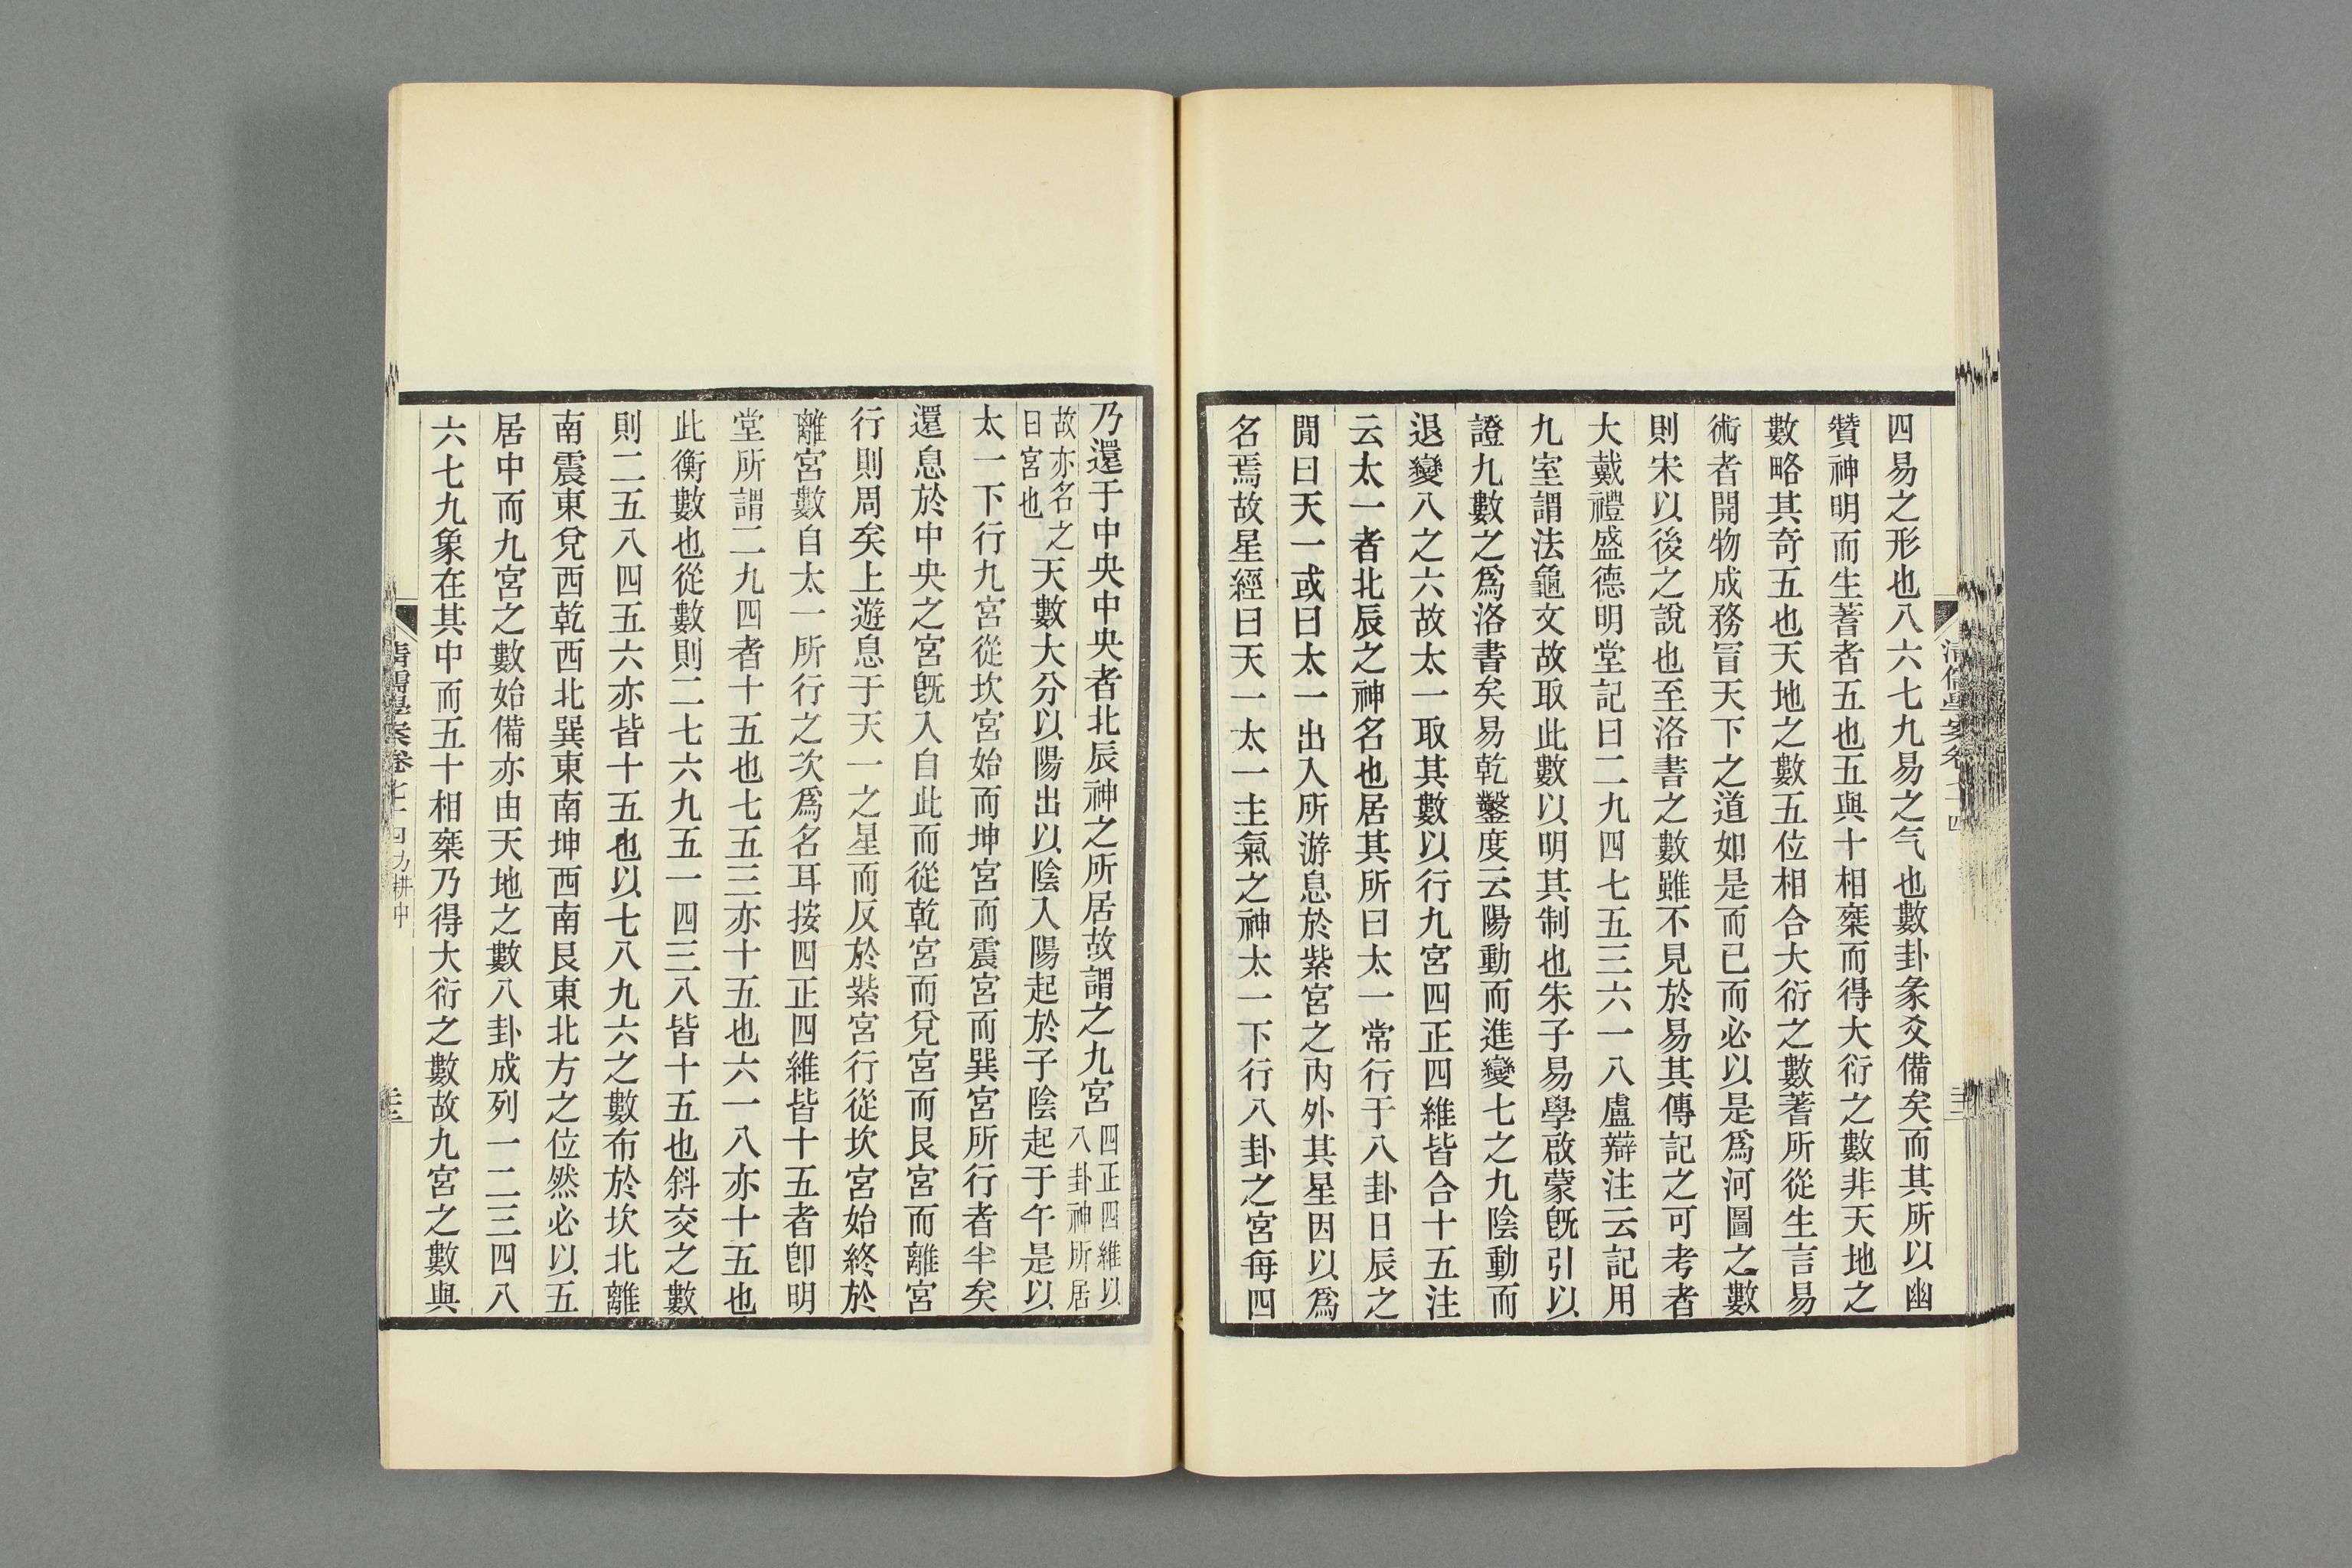 四易之形也八六七九易之气也數卦彖爻備矣而其所以幽
贊神明而生蓍者五也五與十相乘而得大衍之數非天地之
數略其奇五也天地之數五位相合大衍之數蓍所從生言易
術者開物成務冒天下之道如是而已而必以是爲河圖之數
則宋以後之說也至洛書之數雖不見於易其傳記之可考者
大戴禮盛德明堂記曰二九四七五三六一八盧辯注云記用
九室謂法龜文故取此數以明其制也朱子易學啟蒙旣引以
證九數之爲洛書矣易乾鑿度云陽動而進變七之九陰動而
退變八之六故太一取其數以行九宮四正四維皆合十五注
云太一者北辰之神名也居其所曰太一常行于八卦日辰之
閒曰天一或曰太一出入所游息於紫宮之內外其星因以爲
名焉故星經曰天一太一主氣之神太一下行八卦之宮每四
乃還于中央中央者北辰神之所居故謂之九宮四正四維以八卦神所居
故亦名之曰宮也天數大分以陽出以陰入陽起於子陰起于午是以
太一下行九宮從坎宮始而坤宮而震宮而巽宮所行者半矣
還息於中央之宮旣入自此而從乾宮而兌宮而艮宮而離宮
行則周矣上遊息于天一之星而反於紫宮行從坎宮始終於
離宮數自太一所行之次爲名耳按四正四維皆十五者卽明
堂所謂二九四者十五也七五三亦十五也六一八亦十五也
此衡數也從數則二七六九五一四三八皆十五也斜交之數
則二五八四五六亦皆十五也以七八九六之數布於坎北離
南震東兌西乾西北巽東南坤西南艮東北方之位然必以五
居中而九宮之數始備亦由天地之數八卦成列一二三四八
六七九象在其中而五十相乘乃得大衍之數故九宮之數與
清儒學案卷七十四